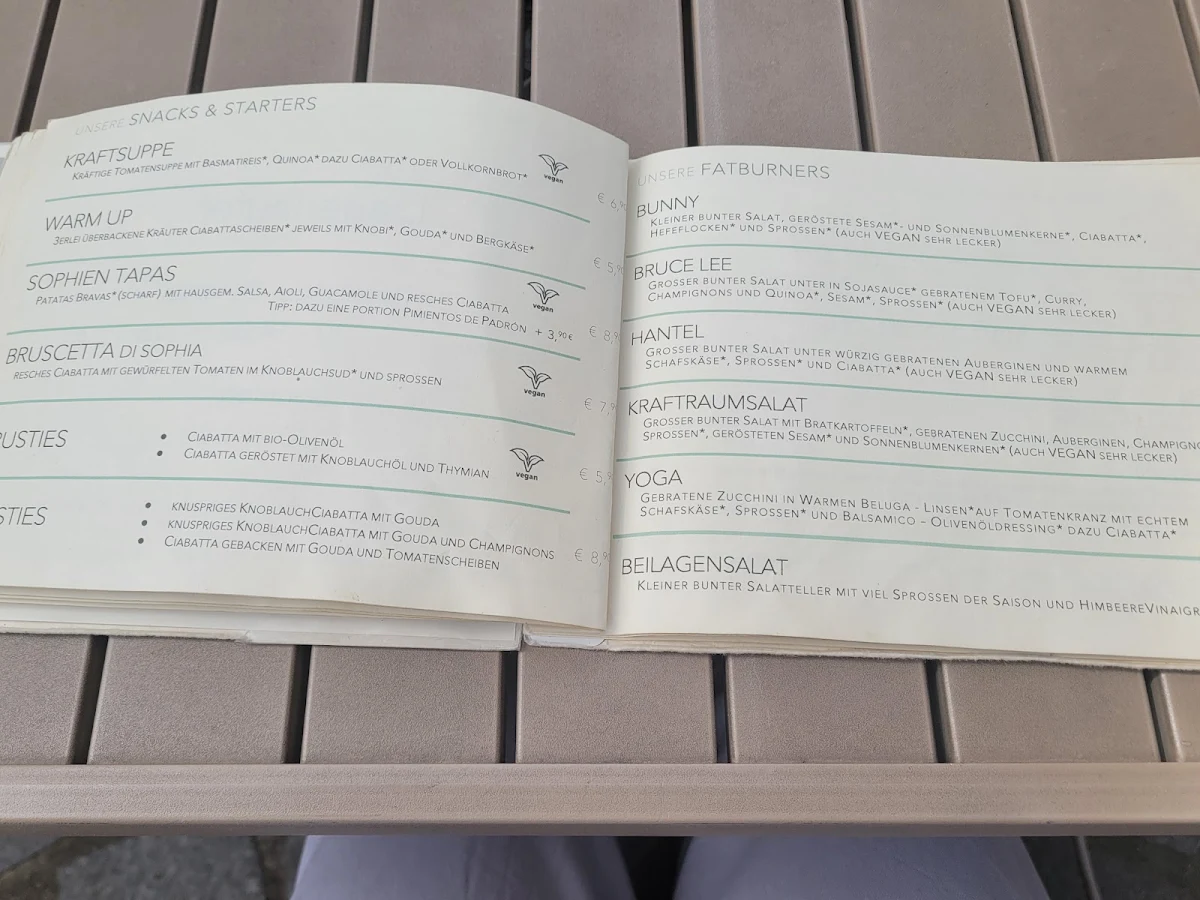 UNSERE SNACKS & STARTERS
KRAFTSUPPE
KRÄFTIGE TOMATENSUPPE MIT BASMATIREIS*, QUINOA* DAZU CIABATTA* ODER VOLLKORNBROT*
vegan
€ 6,90
WARM UP
3ERLEI ÜBERBACKENE KRÄUTER CIABATTASCHEIBEN* JEWEILS MIT KNOBI*, GOUDA* UND BERGKÄSE*
€ 5,9
SOPHIEN TAPAS
PATATAS BRAVAS* (SCHARF) MIT HAUSGEM. SALSA, AIOLI, GUACAMOLE UND RESCHES CIABATTA
TIPP: DAZU EINE PORTION PIMIENTOS DE PADRÓN + 3,90 €
vegan
€ 8,9
BRUSCETTA DI SOPHIA
RESCHES CIABATTA MIT GEWÜRFELTEN TOMATEN IM KNOBLAUCHSUD* UND SPROSSEN
vegan
€ 7,9
USTIES
• CIABATTA MIT BIO-OLIVENÖL
• CIABATTA GERÖSTET MIT KNOBLAUCHÖL UND THYMIAN
vegan
€ 5,9
STIES
• KNUSPRIGES KNOBLAUCHCIABATTA MIT GOUDA
• KNUSPRIGES KNOBLAUCHCIABATTA MIT GOUDA UND CHAMPIGNONS
• CIABATTA GEBACKEN MIT GOUDA UND TOMATENSCHEIBEN
€ 8,90
UNSERE FATBURNERS
BUNNY
KLEINER BUNTER SALAT, GERÖSTETE SESAM*- UND SONNENBLUMENKERNE*, CIABATTA*,
HEFEFLOCKEN* UND SPROSSEN* (AUCH VEGAN SEHR LECKER)
BRUCE LEE
GROSSER BUNTER SALAT UNTER IN SOJASAUCE* GEBRATENEM TOFU*, CURRY,
CHAMPIGNONS UND QUINOA*, SESAM*, SPROSSEN* (AUCH VEGAN SEHR LECKER)
HANTEL
GROSSER BUNTER SALAT UNTER WÜRZIG GEBRATENEN AUBERGINEN UND WARMEM
SCHAFSKÄSE*, SPROSSEN* UND CIABATTA* (AUCH VEGAN SEHR LECKER)
KRAFTRAUMSALAT
GROSSER BUNTER SALAT MIT BRATKARTOFFELN*, GEBRATENEN ZUCCHINI, AUBERGINEN, CHAMPIGNO
SPROSSEN*, GERÖSTETEN SESAM* UND SONNENBLUMENKERNEN* (AUCH VEGAN SEHR LECKER)
YOGA
GEBRATENE ZUCCHINI IN WARMEN BELUGA - LINSEN* AUF TOMATENKRANZ MIT ECHTEM
SCHAFSKÄSE*, SPROSSEN* UND BALSAMICO – OLIVENÖLDRESSING* DAZU CIABATTA*
BEILAGENSALAT
KLEINER BUNTER SALATTELLER MIT VIEL SPROSSEN DER SAISON UND HIMBEEREVINAIGR